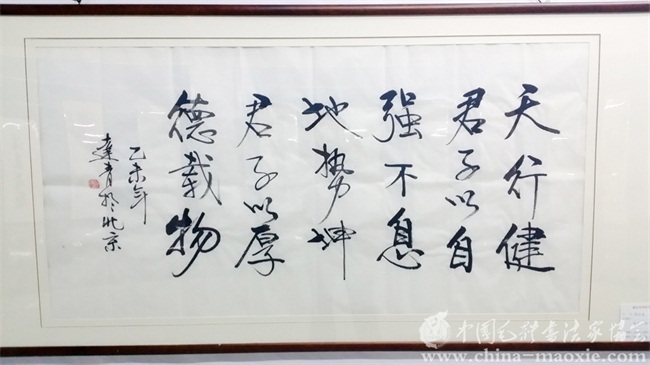 天行健
君子以自
强不息
地势坤
君子以厚
德载物
乙未年
达青於北京
中国毛体书法家协会
www.china-maoxie.com